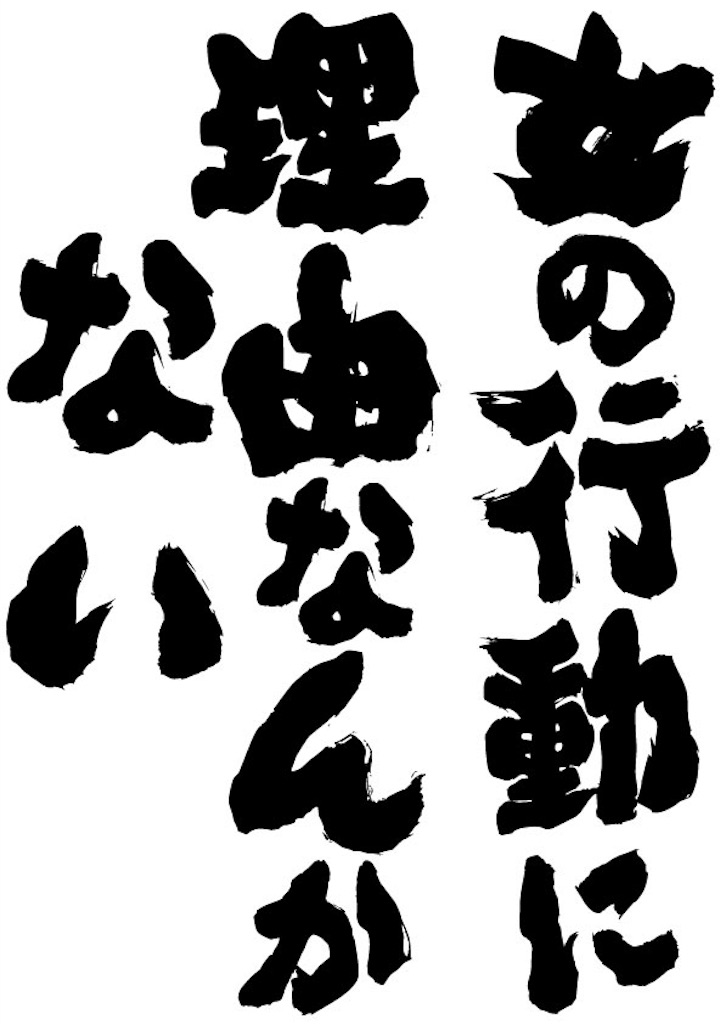 女の行動に
理由なんか
ない